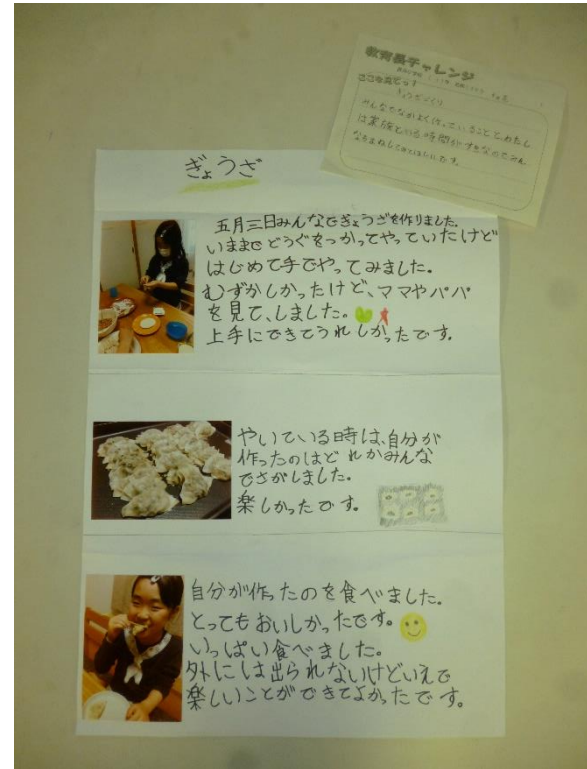 教育長チャレンジ
ぎょうざづくり
ぎょうざ
五月三日みんなでぎょうざを作りました。
いままでどうぐをつかってやっていたけど
はじめて手でやってみました。
むずかしかったけど、ママやパパ
を見て、しました。
上手にできてうれしかったです。
やいている時は、自分が
作ったのはどれかみんな
でさがしました。
楽しかったです。
自分が作ったのを食べました。
とってもおいしかったです。
いっぱい食べました。
外には出られないけどいえで
楽しいことができてよかったです。